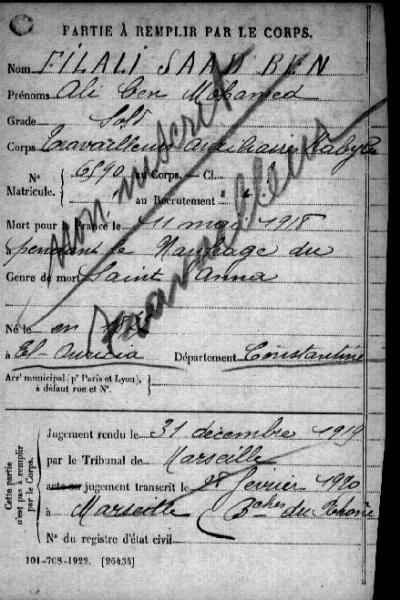 PARTIE À REMPLIR PAR LE CORPS.
Nom FILALI SAAD BEN
Prénoms Ali ben Mohamed
Grade Sold
Corps Travailleurs auxiliaires Kabyles
N° Matricule. 6590 au Corps. — Cl.
au Recrutement
Mort pour la France le 11 mai 1918
à pendant le Naufrage du
Genre de mort Saint Anna
Né le en
à El Ouricia Département Constantine
Arrt municipal (pr Paris et Lyon), à défaut rue et N°.
Cette partie n'est pas à remplir par le Corps.
Jugement rendu le 31 décembre 1919
par le Tribunal de Marseille
acte ou jugement transcrit le 28 février 1920
à Marseille Bches du Rhône
N° du registre d'état civil
101-708-1922. [26434]
non inscrit
Travailleur